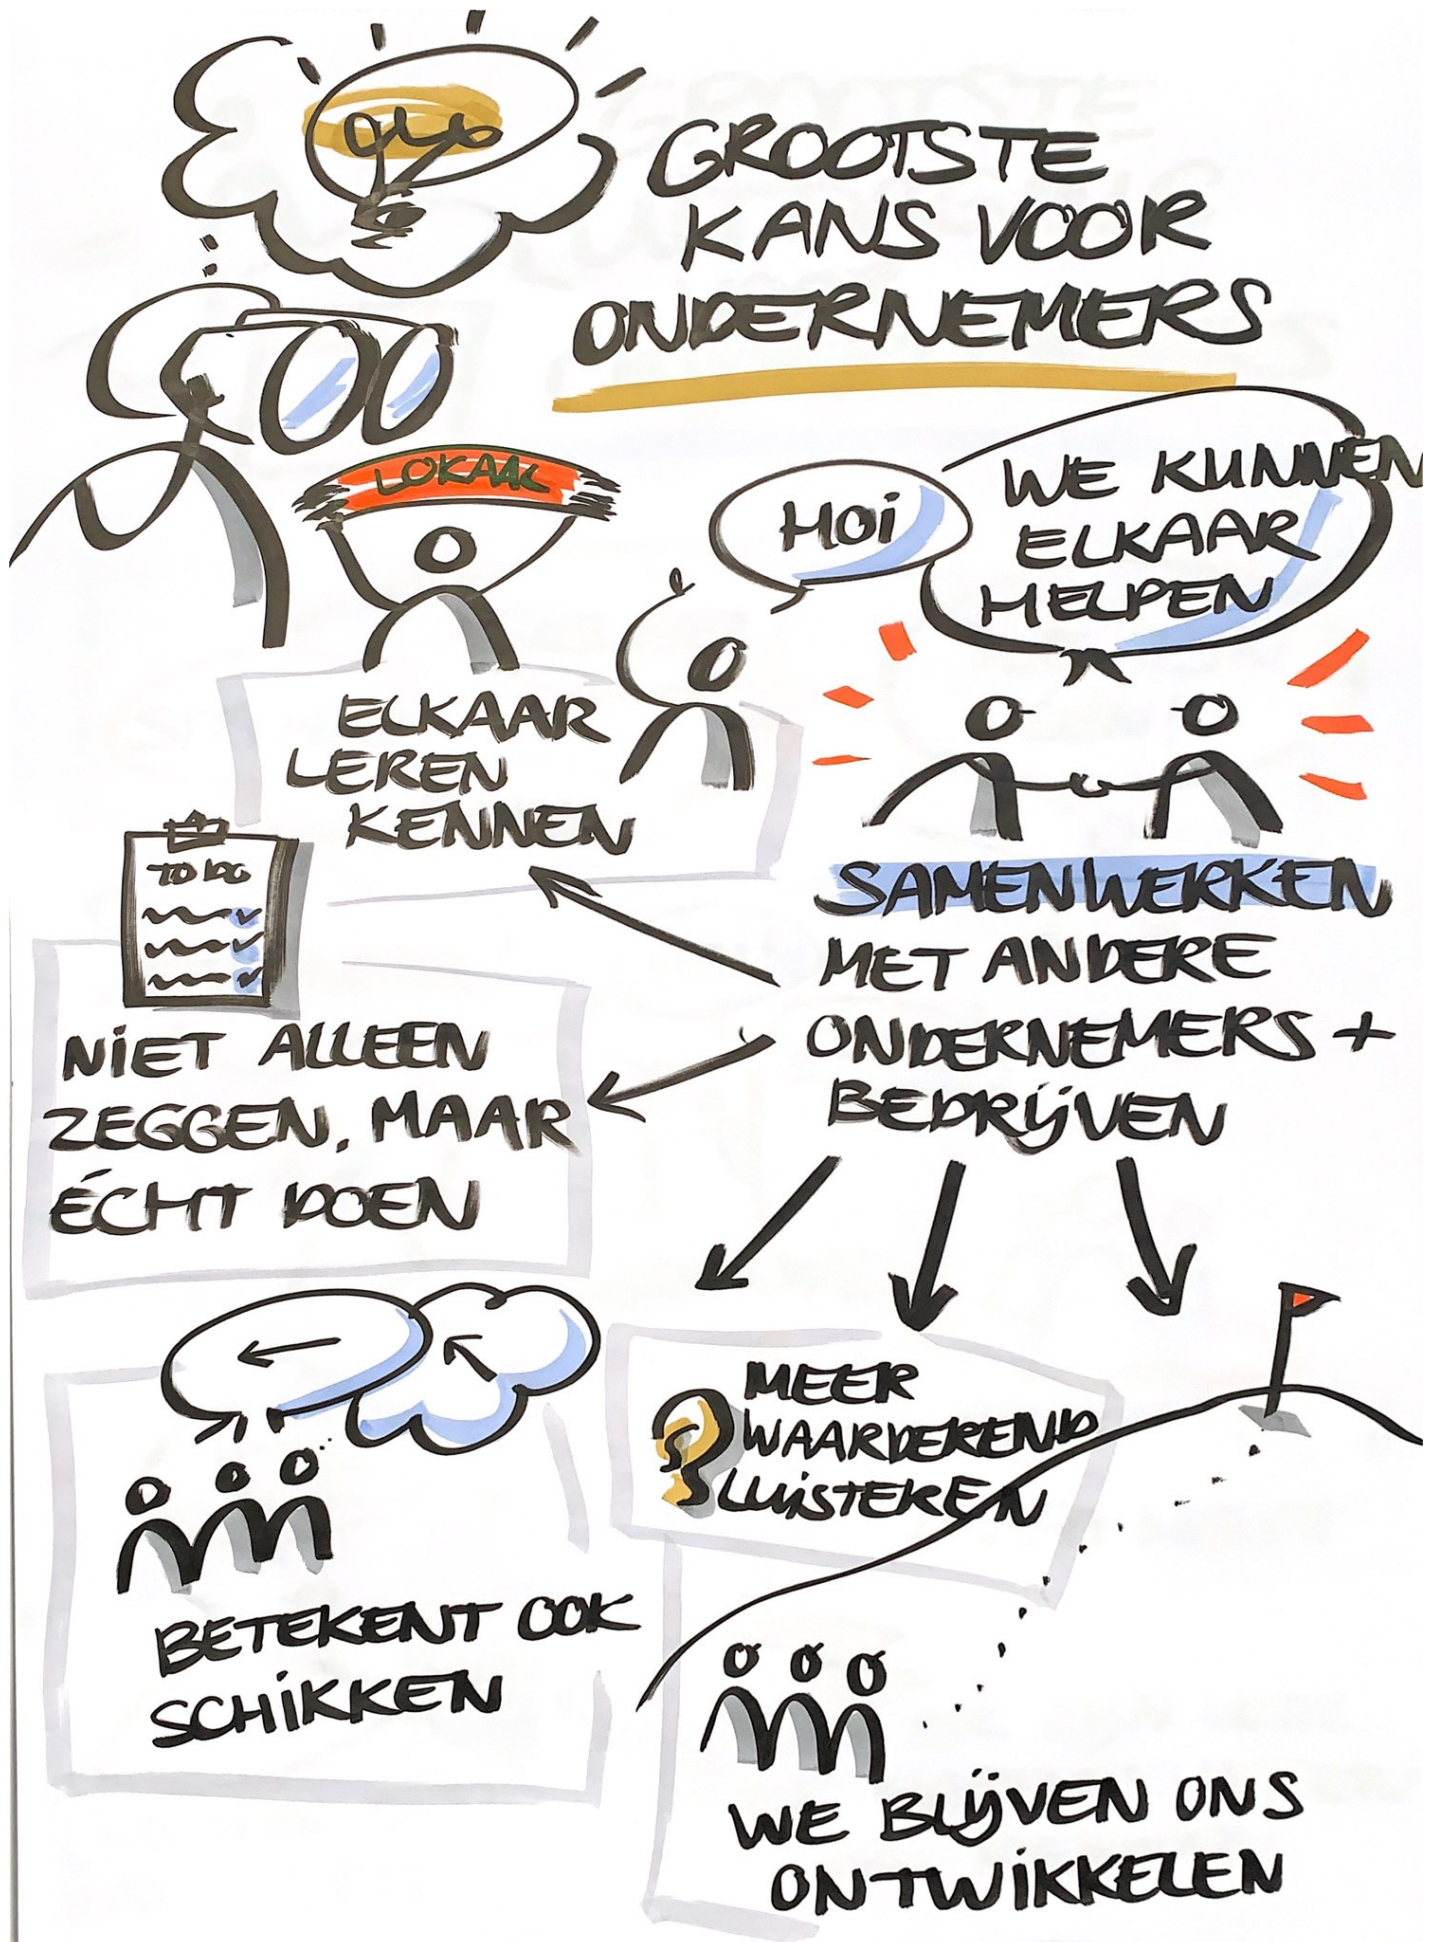 GROOTSTE
KANS VOOR
ONDERNEMERS
LOKAAL
HOI
WE KUNNEN
ELKAAR
HELPEN
ELKAAR
LEREN
KENNEN
TO DO
SAMENWERKEN
MET ANDERE
ONDERNEMERS +
BEDRIJVEN
NIET ALLEEN
ZEGGEN, MAAR
ÉCHT DOEN
MEER
WAARDEREND
LUISTEREN
BETEKENT OOK
SCHIKKEN
WE BLIJVEN ONS
ONTWIKKELEN